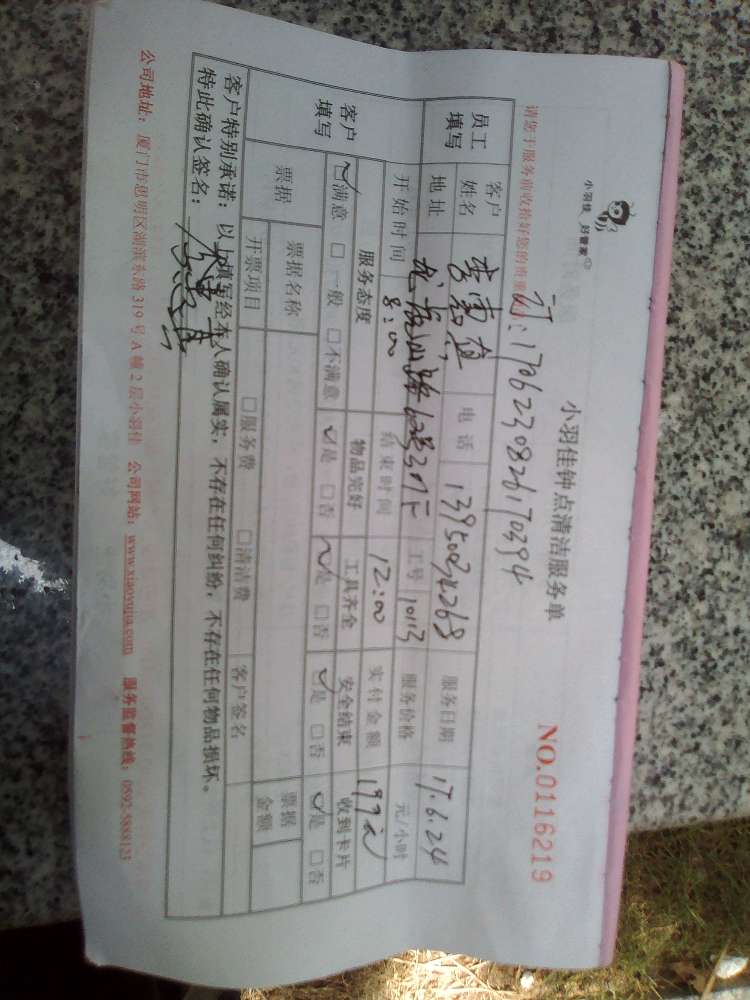 小羽佳 好管家
小羽佳钟点清洁服务单
NO.0116219
订:1706230826170394
请您于服务前收拾好您的贵重
员工填写 客户姓名 电话 13950034268 服务日期 17.6.24
地址 工号 1013 服务价格 元/小时
客户填写 开始时间 8:00 结束时间 12:00 实付金额 197元
服务态度 物品完好 工具齐全 安全结束 收到卡片
☑满意 □一般 □不满意 ☑是 □否 ☑是 □否 ☑是 □否 ☑是 □否
票据 票据名称 票据金额
开票项目 □服务费 □清洁费 客户签名
客户特别承诺:以上填写经本人确认属实,不存在任何纠纷,不存在任何物品损坏。
特此确认签名:
公司地址:厦门市思明区湖滨东路319号A幢2层小羽佳 公司网站:www.xiaoyujia.com 服务监督热线:0592-5888123